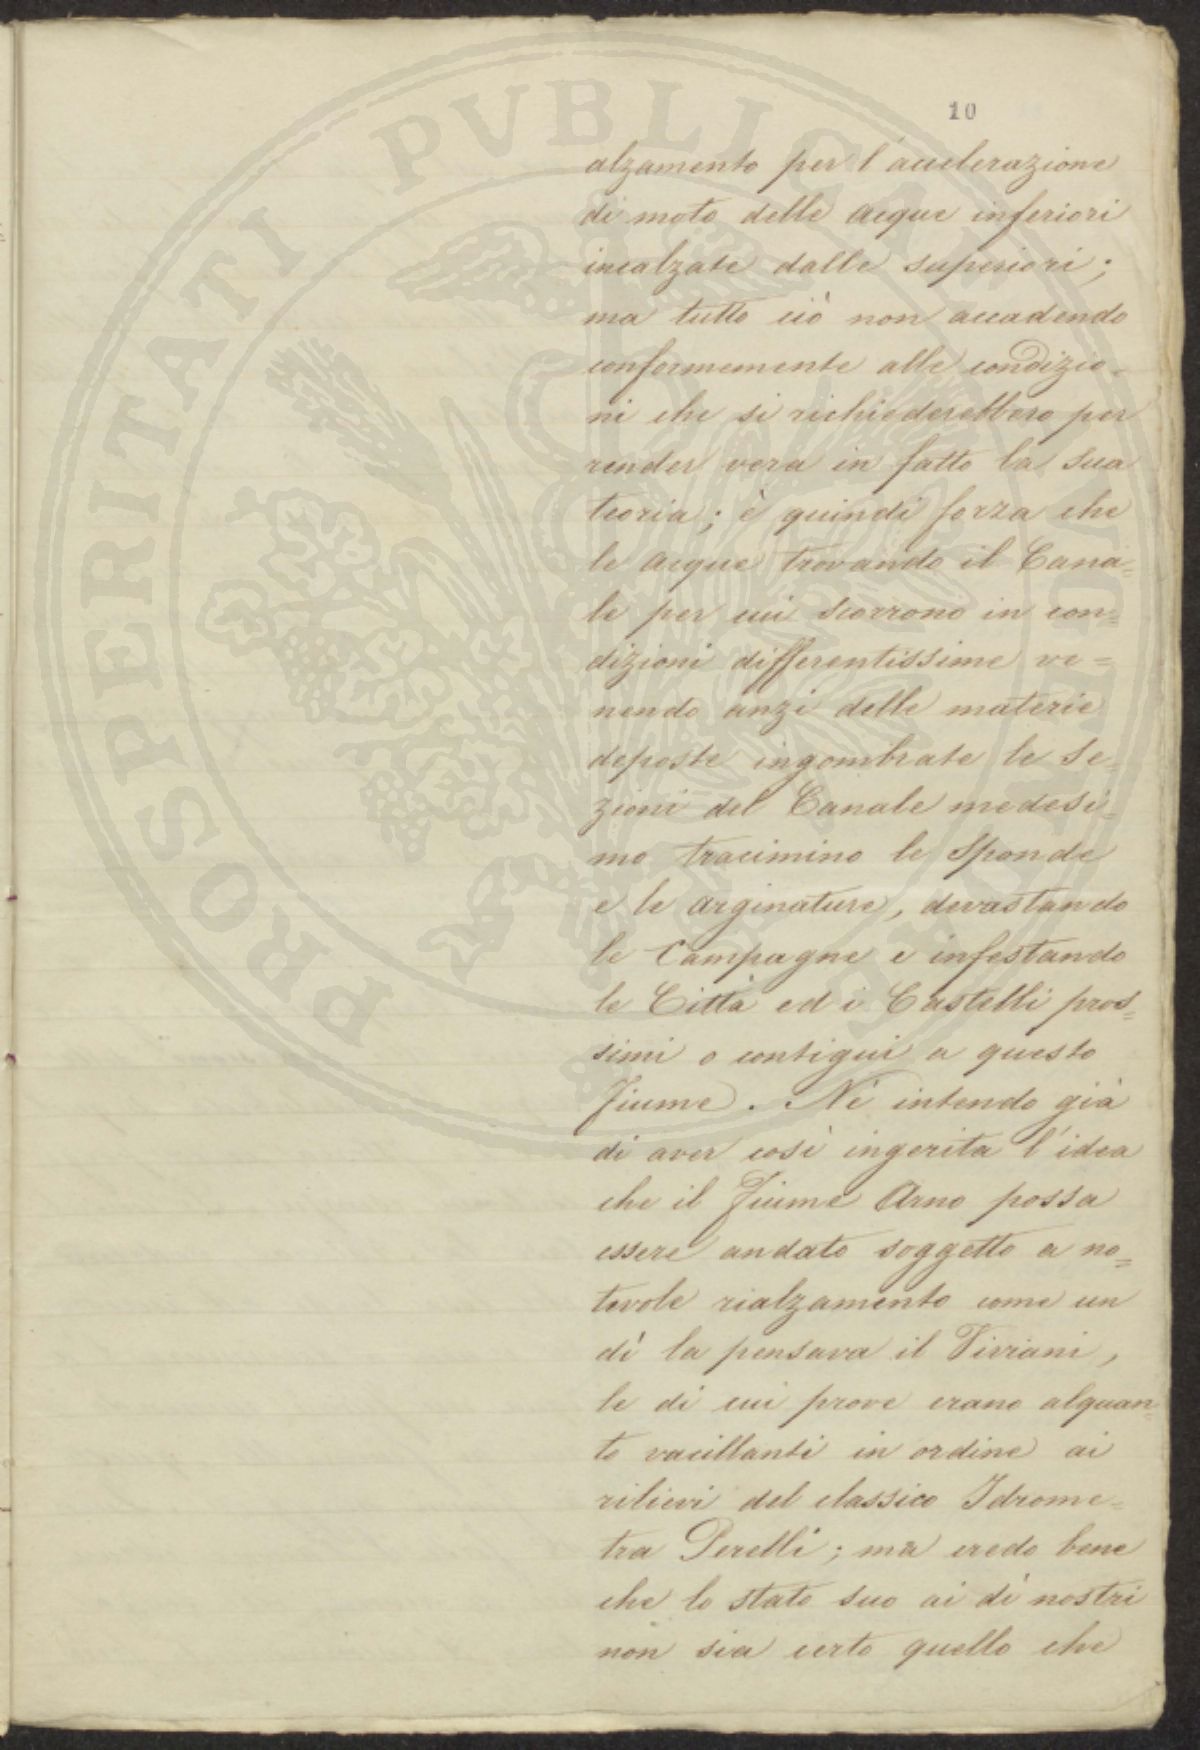 10
alzamento per l'accelerazione
di moto delle Acque inferiori
incalzate dalle superiori;
ma tutto ciò non accadendo
conformemente alle condizio-
ni che si richiederebbero per
render vera in fatto la sua
teoria; è quindi forza che
le Acque trovando il Cana=
le per cui scorrono in con=
dizioni differentissime ve=
nendo anzi delle materie
deposte ingombrate le Se=
zioni del Canale medesi=
mo tracimino le Sponde
e le Arginature, devastando
le Campagne e infestando
le Città ed i Castelli pros=
simi o contigui a questo
Fiume. Nè intendo già
di aver così ingerita l'idea
che il Fiume Arno possa
essere andato soggetto a no=
tevole rialzamento come un
dì la pensava il Viviani,
le di cui prove erano alquan=
to vacillanti in ordine ai
rilievi del classico Idrome=
tra Perelli; ma credo bene
che lo stato suo ai dì nostri
non sia certo quello che
PROSPERITATI PVBLICAE